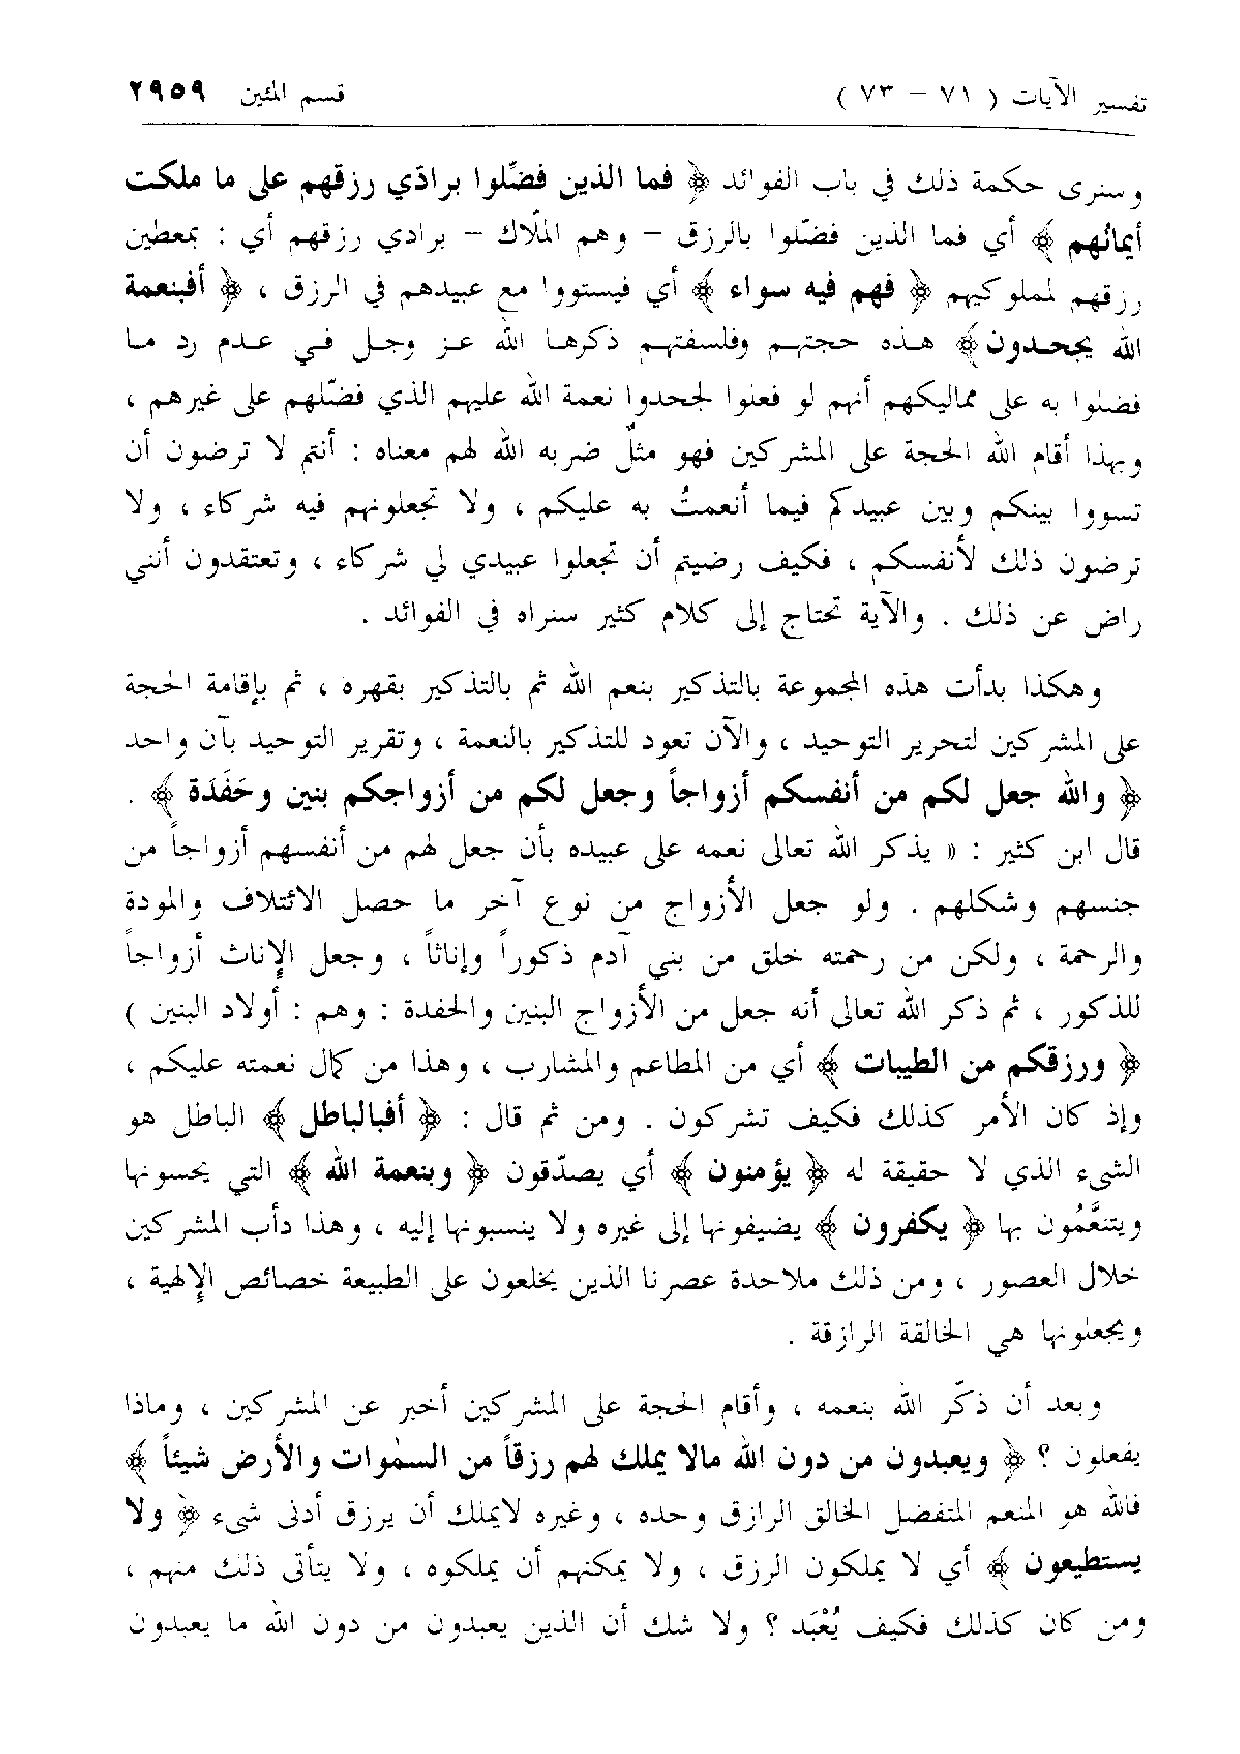 تفسير الآيات ( ٧١ - ٧٣ ) قسم المئين ٢٩٥٩
وسنرى حكمة ذلك في باب الفوائد ﴿ فما الذين فضّلوا برادّي رزقهم على ما ملكت
أيمانُهم ﴾ أي فما الذين فضّلوا بالرزق - وهم المُلّاك - برادي رزقهم أي : بمعطين
رزقهم لمملوكيهم ﴿ فهم فيه سواء ﴾ أي فيستووا مع عبيدهم في الرزق ، ﴿ أفبنعمة
الله يجحدون ﴾ هذه حجتهم وفلسفتهم ذكرها الله عز وجل في عدم رد ما
فضلوا به على مماليكهم أنهم لو فعلوا لجحدوا نعمة الله عليهم الذي فضّلهم على غيرهم ،
وبهذا أقام الله الحجة على المشركين فهو مثلٌ ضربه الله لهم معناه : أنتم لا ترضون أن
تسووا بينكم وبين عبيدكم فيما أنعمتُ به عليكم ، ولا تجعلونهم فيه شركاء ، ولا
ترضون ذلك لأنفسكم ، فكيف رضيتم أن تجعلوا عبيدي لي شركاء ، وتعتقدون أنني
راض عن ذلك . والآية تحتاج إلى كلام كثير سنراه في الفوائد .
وهكذا بدأت هذه المجموعة بالتذكير بنعم الله ثم بالتذكير بقهره ، ثم بإقامة الحجة
على المشركين لتحرير التوحيد ، والآن تعود للتذكير بالنعمة ، وتقرير التوحيد بآن واحد
﴿ والله جعل لكم من أنفسكم أزواجاً وجعل لكم من أزواجكم بنين وحَفَدَة ﴾ .
قال ابن كثير : « يذكر الله تعالى نعمه على عبيده بأن جعل لهم من أنفسهم أزواجاً من
جنسهم وشكلهم . ولو جعل الأزواج من نوع آخر ما حصل الائتلاف والمودة
والرحمة ، ولكن من رحمته خلق من بني آدم ذكوراً وإناثاً ، وجعل الإناث أزواجاً
للذكور ، ثم ذكر الله تعالى أنه جعل من الأزواج البنين والحفدة : وهم : أولاد البنين )
﴿ ورزقكم من الطيبات ﴾ أي من المطاعم والمشارب ، وهذا من كمال نعمته عليكم ،
وإذ كان الأمر كذلك فكيف تشركون . ومن ثم قال : ﴿ أفبالباطل ﴾ الباطل هو
الشىء الذي لا حقيقة له ﴿ يؤمنون ﴾ أي يصدّقون ﴿ وبنعمة الله ﴾ التي يحسونها
ويتنعَّمُون بها ﴿ يكفرون ﴾ يضيفونها إلى غيره ولا ينسبونها إليه ، وهذا دأب المشركين
خلال العصور ، ومن ذلك ملاحدة عصرنا الذين يخلعون على الطبيعة خصائص الإلهية ،
ويجعلونها هي الخالقة الرازقة .
وبعد أن ذكّر الله بنعمه ، وأقام الحجة على المشركين أخبر عن المشركين ، وماذا
يفعلون ؟ ﴿ ويعبدون من دون الله مالا يملك لهم رزقاً من السمٰوات والأرض شيئاً ﴾
فالله هو المنعم المتفضل الخالق الرازق وحده ، وغيره لايملك أن يرزق أدنى شىء ﴿ ولا
يستطيعون ﴾ أي لا يملكون الرزق ، ولا يمكنهم أن يملكوه ، ولا يتأتى ذلك منهم ،
ومن كان كذلك فكيف يُعْبَد ؟ ولا شك أن الذين يعبدون من دون الله ما يعبدون